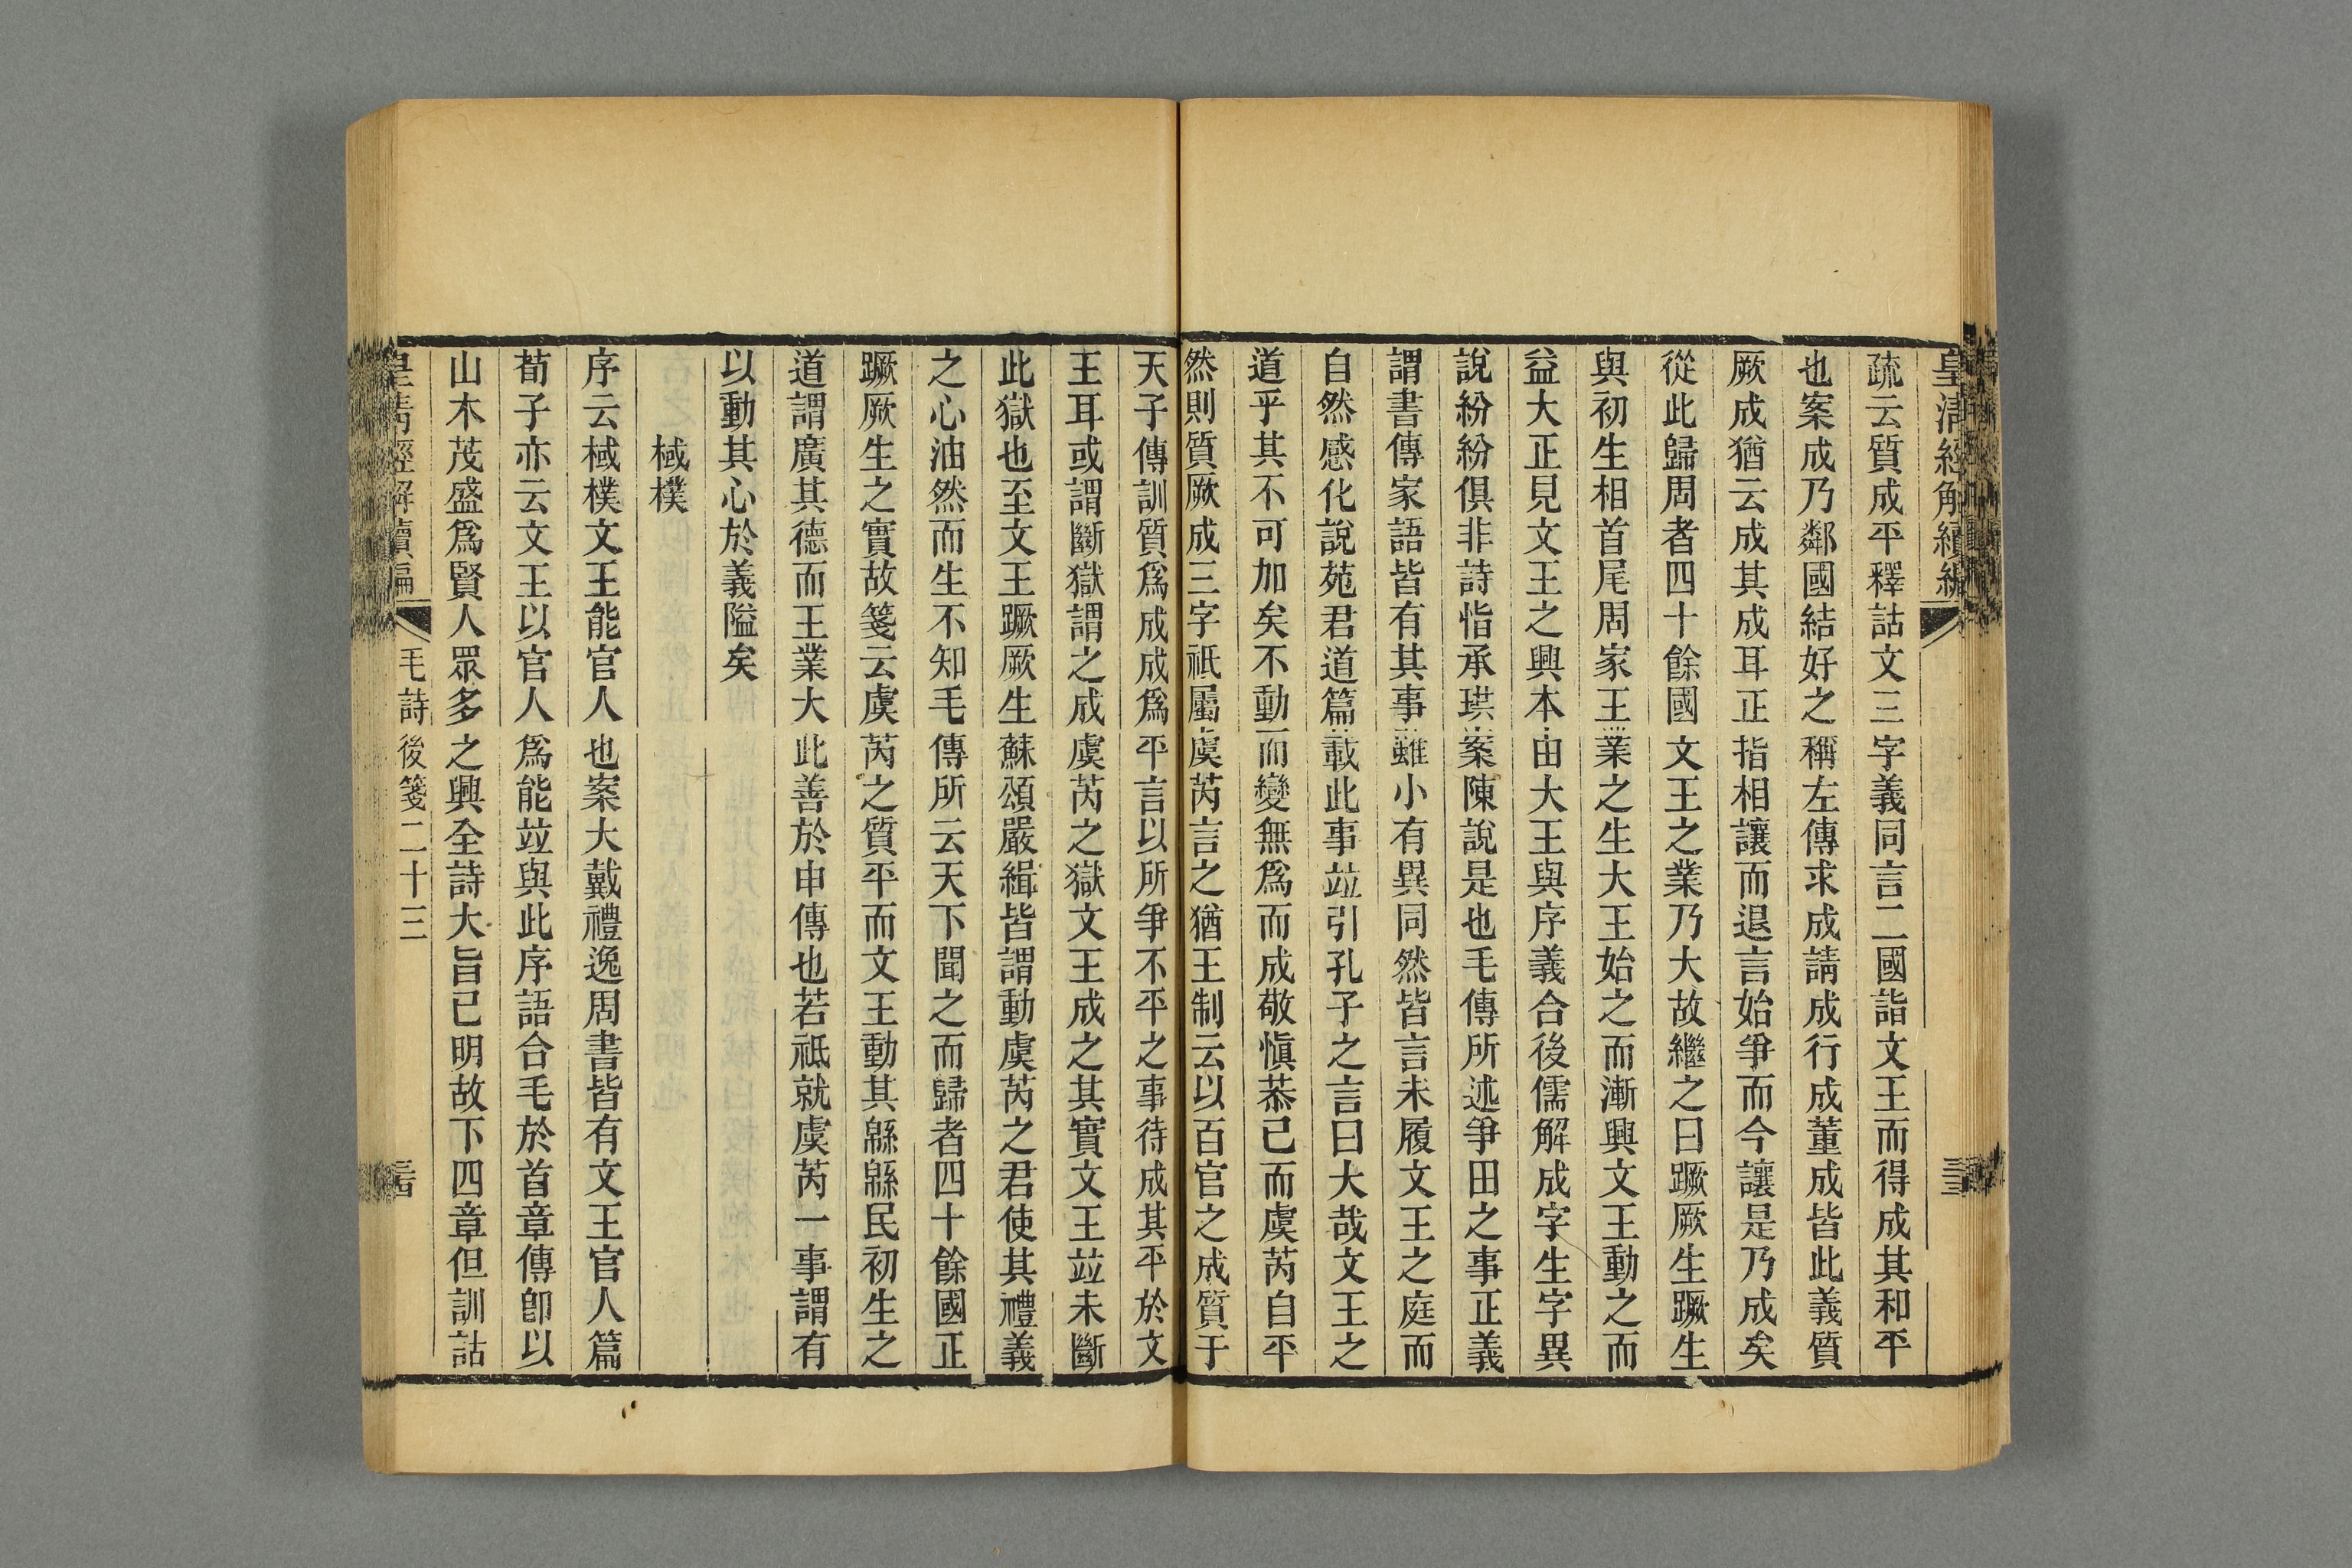 皇清經解續編
疏云質成平釋詁文三字義同言二國詣文王而得成其和平
也案成乃鄰國結好之稱左傳求成請成行成董成皆此義質
厥成猶云成其成耳正指相讓而退言始爭而今讓是乃成矣
從此歸周者四十餘國文王之業乃大故繼之曰蹶厥生蹶生
與初生相首尾周家王業之生大王始之而漸興文王動之而
益大正見文王之興本由大王與序義合後儒解成字生字異
說紛紛俱非詩恉承珙案陳說是也毛傳所述爭田之事正義
謂書傳家語皆有其事雖小有異同然皆言未履文王之庭而
自然感化說苑君道篇載此事竝引孔子之言曰大哉文王之
道乎其不可加矣不動而變無爲而成敬愼恭己而虞芮自平
然則質厥成三字祇屬虞芮言之猶王制云以百官之成質于
天子傳訓質爲成成爲平言以所爭不平之事待成其平於文
王耳或謂斷獄謂之成虞芮之獄文王成之其實文王竝未斷
此獄也至文王蹶厥生蘇頌嚴緝皆謂動虞芮之君使其禮義
之心油然而生不知毛傳所云天下聞之而歸者四十餘國正
蹶厥生之實故箋云虞芮之質平而文王動其緜緜民初生之
道謂廣其德而王業大此善於申傳也若祗就虞芮一事謂有
以動其心於義隘矣
棫樸
序云棫樸文王能官人也案大戴禮逸周書皆有文王官人篇
荀子亦云文王以官人爲能竝與此序語合毛於首章傳卽以
山木茂盛爲賢人眾多之興全詩大旨已明故下四章但訓詁
皇清經解續編
毛詩後箋二十三